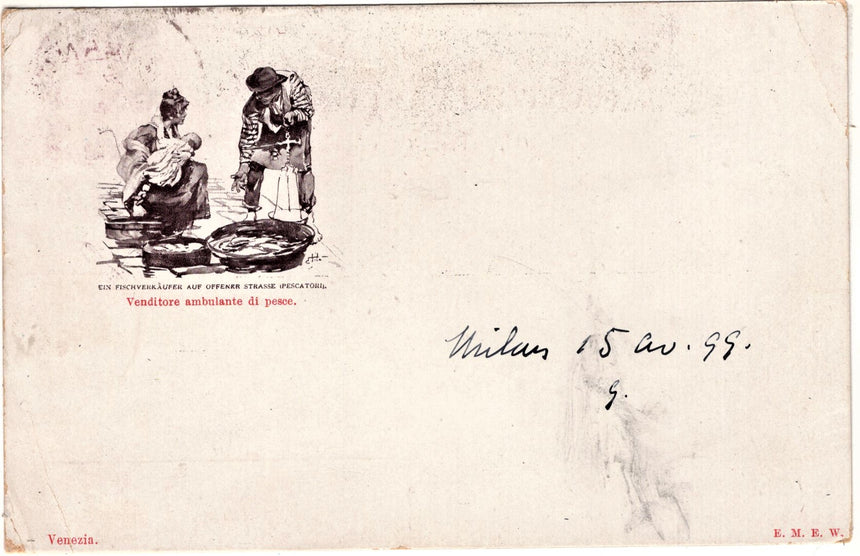 EIN FISCHVERKÄUFER AUF OFFENER STRASSE (PESCATORI).
Venditore ambulante di pesce.
Milan 15 av. 99.
g.
Venezia.
E. M. E. W.